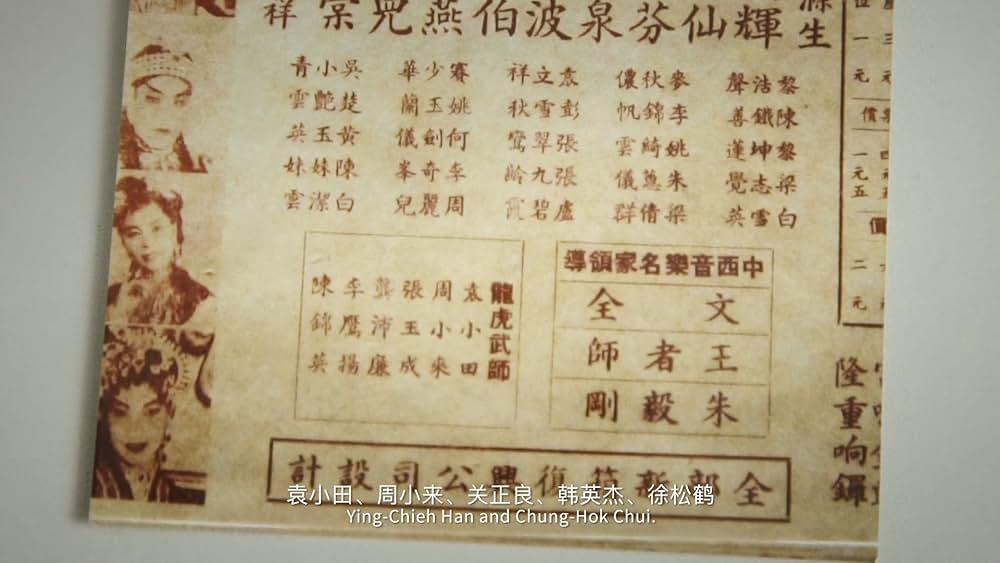 滌生
輝仙芬泉波伯燕兒棠祥
黎沽聲 麥秋儂 袁文祥 賽少華 吳小青
陳鐵善 李錦帆 彭雪秋 姚玉蘭 楚艷雲
黎坤蓮 姚綺雲 張翠鸞 何劍儀 黃玉英
梁志覺 朱蕙儀 張九齡 李奇峯 陳妹妹
白雪英 梁倩群 盧碧霞 周麗兒 白潔雲
中西音樂名家領導
文全
王者師
朱毅剛
龍虎武師
袁小田
周小來
張玉成
龔沛廉
李鷹揚
陳錦英
隆重响鑼
全部復興公司設計
袁小田、周小来、关正良、韩英杰、徐松鹤
Ying-Chieh Han and Chung-Hok Chui.